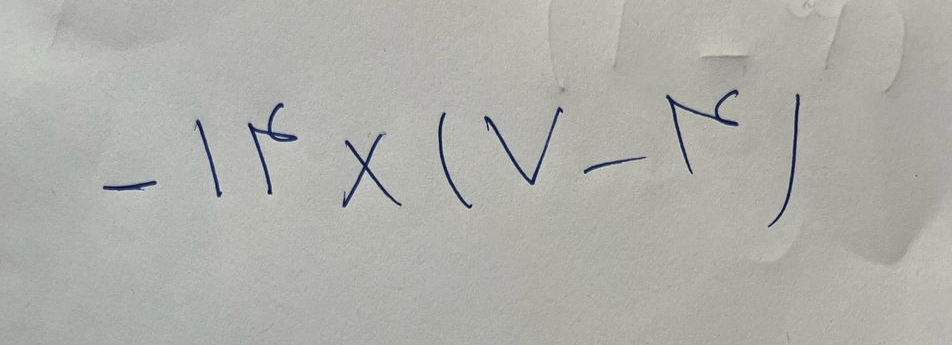 -۱۴×(۷-۴)